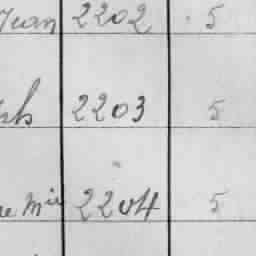 Jean 2202 5
2203 5
Mie 2204 5